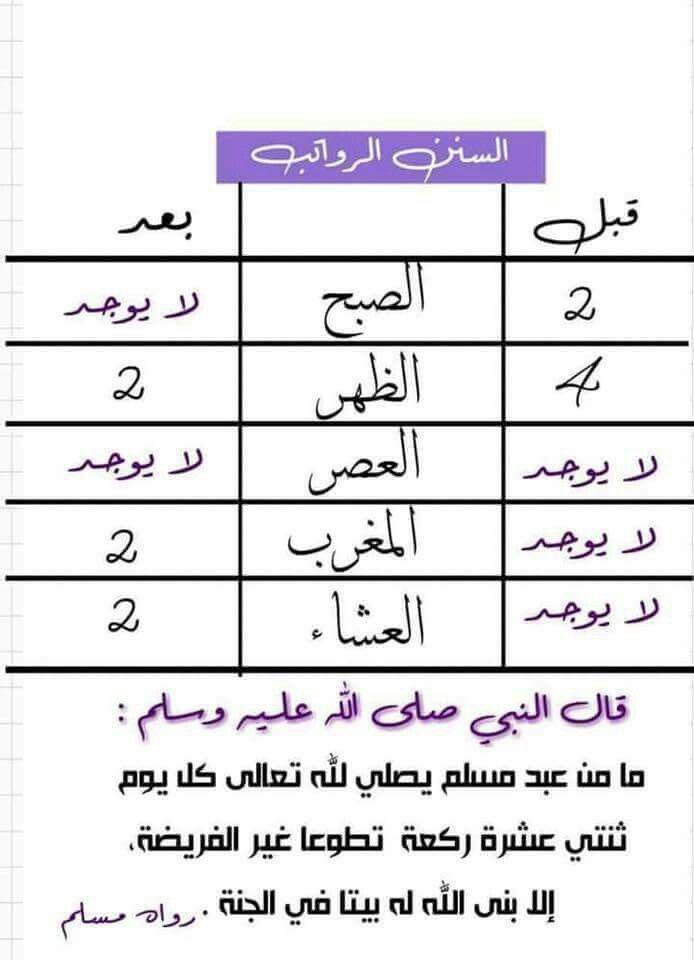 السنن الرواتب
قبل بعد
2 الصبح لا يوجد
4 الظهر 2
لا يوجد العصر لا يوجد
لا يوجد المغرب 2
لا يوجد العشاء 2
قال النبي صلى الله عليه وسلم :
ما من عبد مسلم يصلي لله تعالى كل يوم
ثنتي عشرة ركعة تطوعا غير الفريضة،
إلا بنى الله له بيتا في الجنة . رواه مسلم